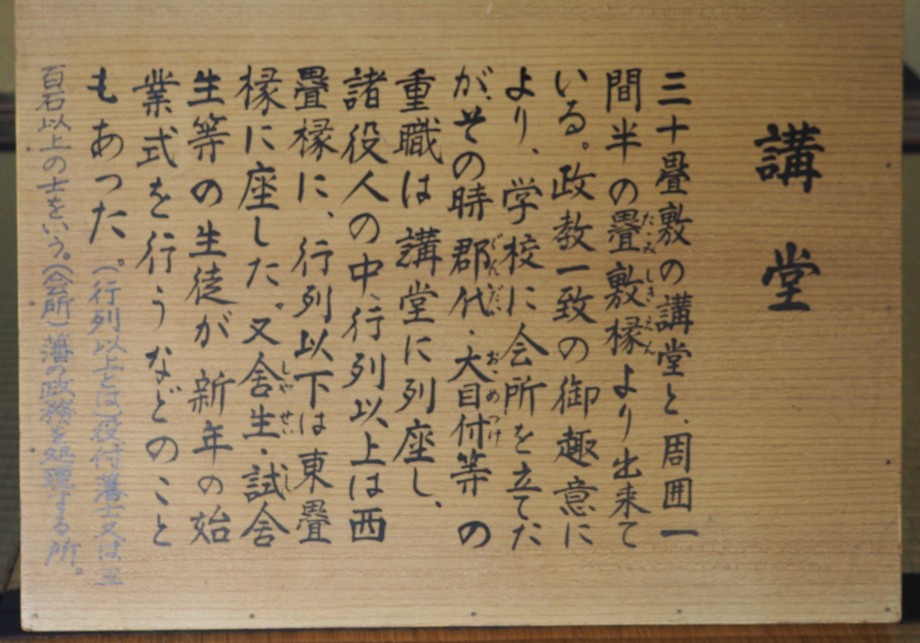 講堂
三十畳敷の講堂と、周囲一
間半の畳敷縁より出来て
いる。政教一致の御趣意に
より、学校に会所を立てた
が、その時郡代・大目付等の
重職は講堂に列座し、
諸役人の中、行列以上は西
畳縁に、行列以下は東畳
縁に座した。又舎生・試舎
生等の生徒が新年の始
業式を行うなどのこと
もあった。(行列以上とは)役付藩士又は
百石以上の士をいう。(会所)藩の政務を処理する所。